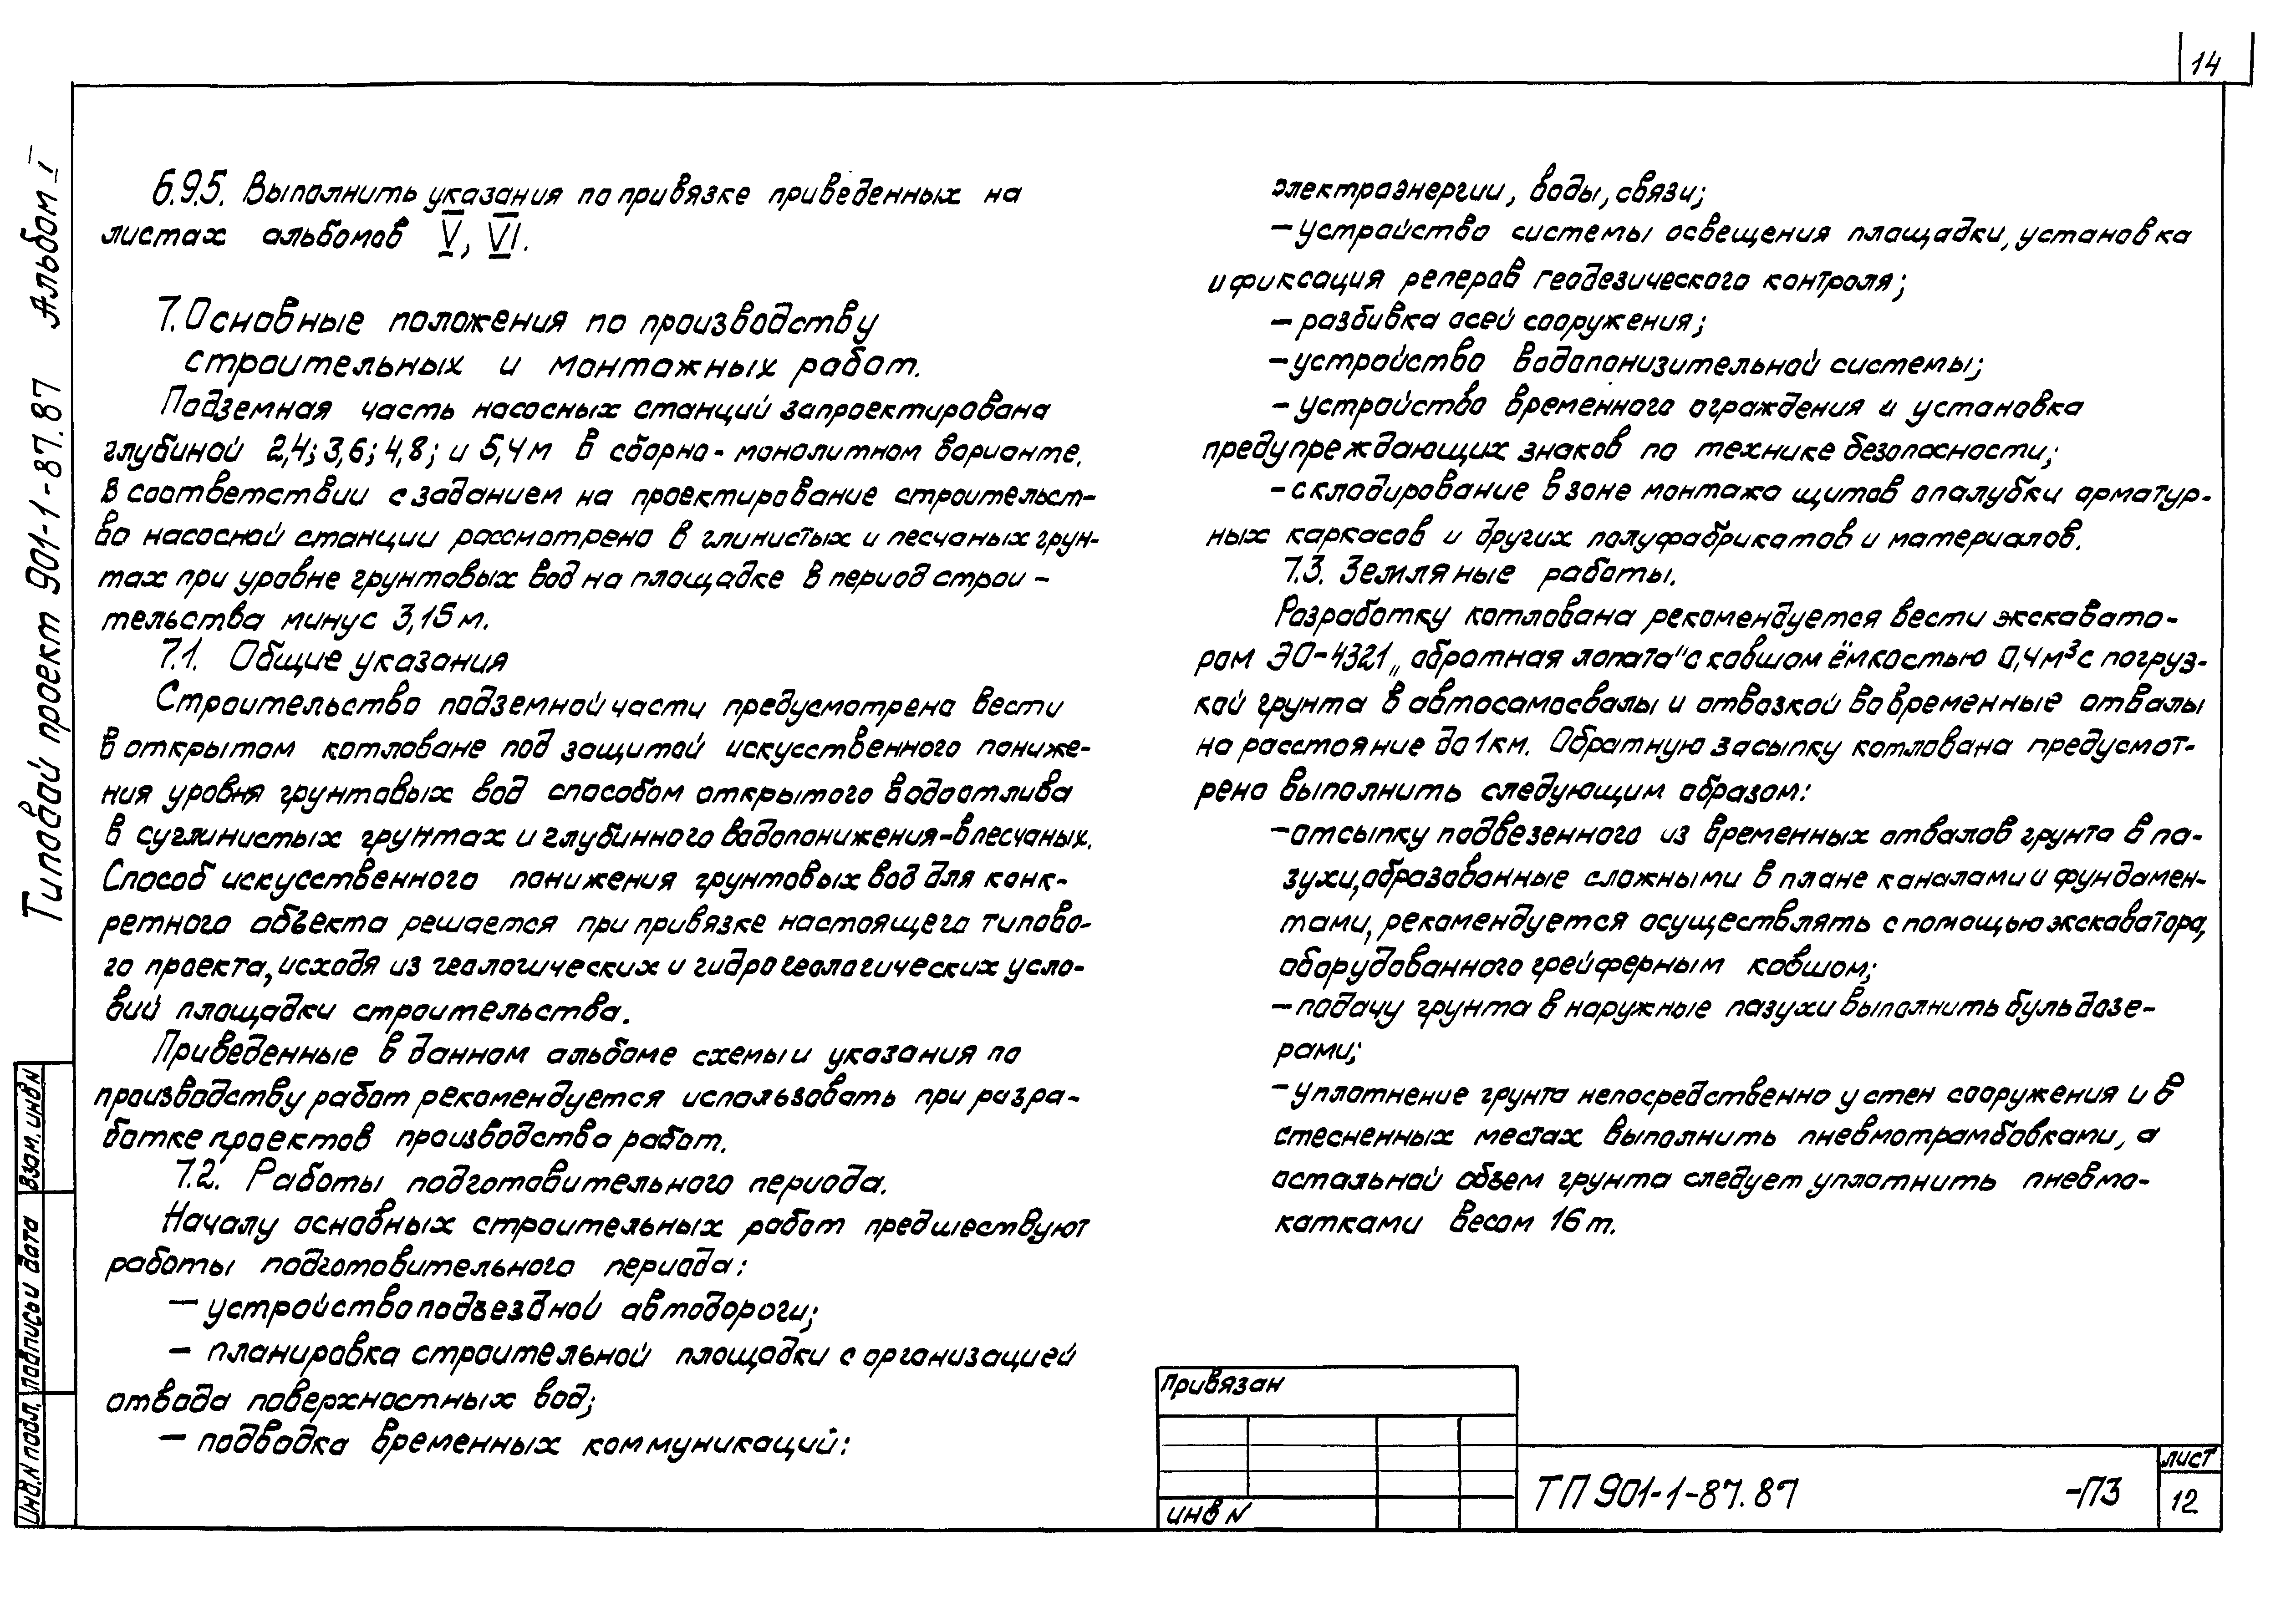 14
Типовой проект 901-1-87.87 Альбом I
6.9.5. Выполнить указания по привязке приведенных на
листах альбомов V, VI.
7. Основные положения по производству
строительных и монтажных работ.
Подземная часть насосных станций запроектирована
глубиной 2,4; 3,6; 4,8; и 5,4 м в сборно-монолитном варианте.
В соответствии с заданием на проектирование строительст-
во насосной станции рассмотрено в глинистых и песчаных грун-
тах при уровне грунтовых вод на площадке в период строи-
тельства минус 3,15 м.
7.1. Общие указания
Строительство подземной части предусмотрено вести
в открытом котловане под защитой искусственного пониже-
ния уровня грунтовых вод способом открытого водоотлива
в суглинистых грунтах и глубинного водопонижения-в песчаных.
Способ искусственного понижения грунтовых вод для конк-
ретного объекта решается при привязке настоящего типово-
го проекта, исходя из геологических и гидрогеологических усло-
вий площадки строительства.
Приведенные в данном альбоме схемы и указания по
производству работ рекомендуется использовать при разра-
ботке проектов производства работ.
7.2. Работы подготовительного периода.
Началу основных строительных работ предшествуют
работы подготовительного периода:
— устройство подъездной автодороги;
— планировка строительной площадки с организацией
отвода поверхностных вод;
— подводка временных коммуникаций:
электроэнергии, воды, связи;
— устройство системы освещения площадки, установка
и фиксация реперов геодезического контроля;
— разбивка осей сооружения;
— устройство водопонизительной системы;
— устройство временного ограждения и установка
предупреждающих знаков по технике безопасности;
— складирование в зоне монтажа щитов опалубки арматур-
ных каркасов и других полуфабрикатов и материалов.
7.3. Земляные работы.
Разработку котлована рекомендуется вести экскавато-
ром ЭО-4321 „обратная лопата" с ковшом ёмкостью 0,4 м³ с погруз-
кой грунта в автосамосвалы и отвозкой во временные отвалы
на расстояние до 1 км. Обратную засыпку котлована предусмот-
рено выполнить следующим образом:
— отсыпку подвезенного из временных отвалов грунта в па-
зухи, образованные сложными в плане каналами и фундамен-
тами, рекомендуется осуществлять с помощью экскаватора,
оборудованного грейферным ковшом;
— подачу грунта в наружные пазухи выполнить бульдозе-
рами;
— уплотнение грунта непосредственно у стен сооружения и в
стесненных местах выполнить пневмотрамбовками, а
остальной объем грунта следует уплотнить пневмо-
катками весом 16 т.
Привязан
инв N
ТП 901-1-87.87 -ПЗ
лист
12
Взам. инв N
Подпись и дата
Инв. N подл.